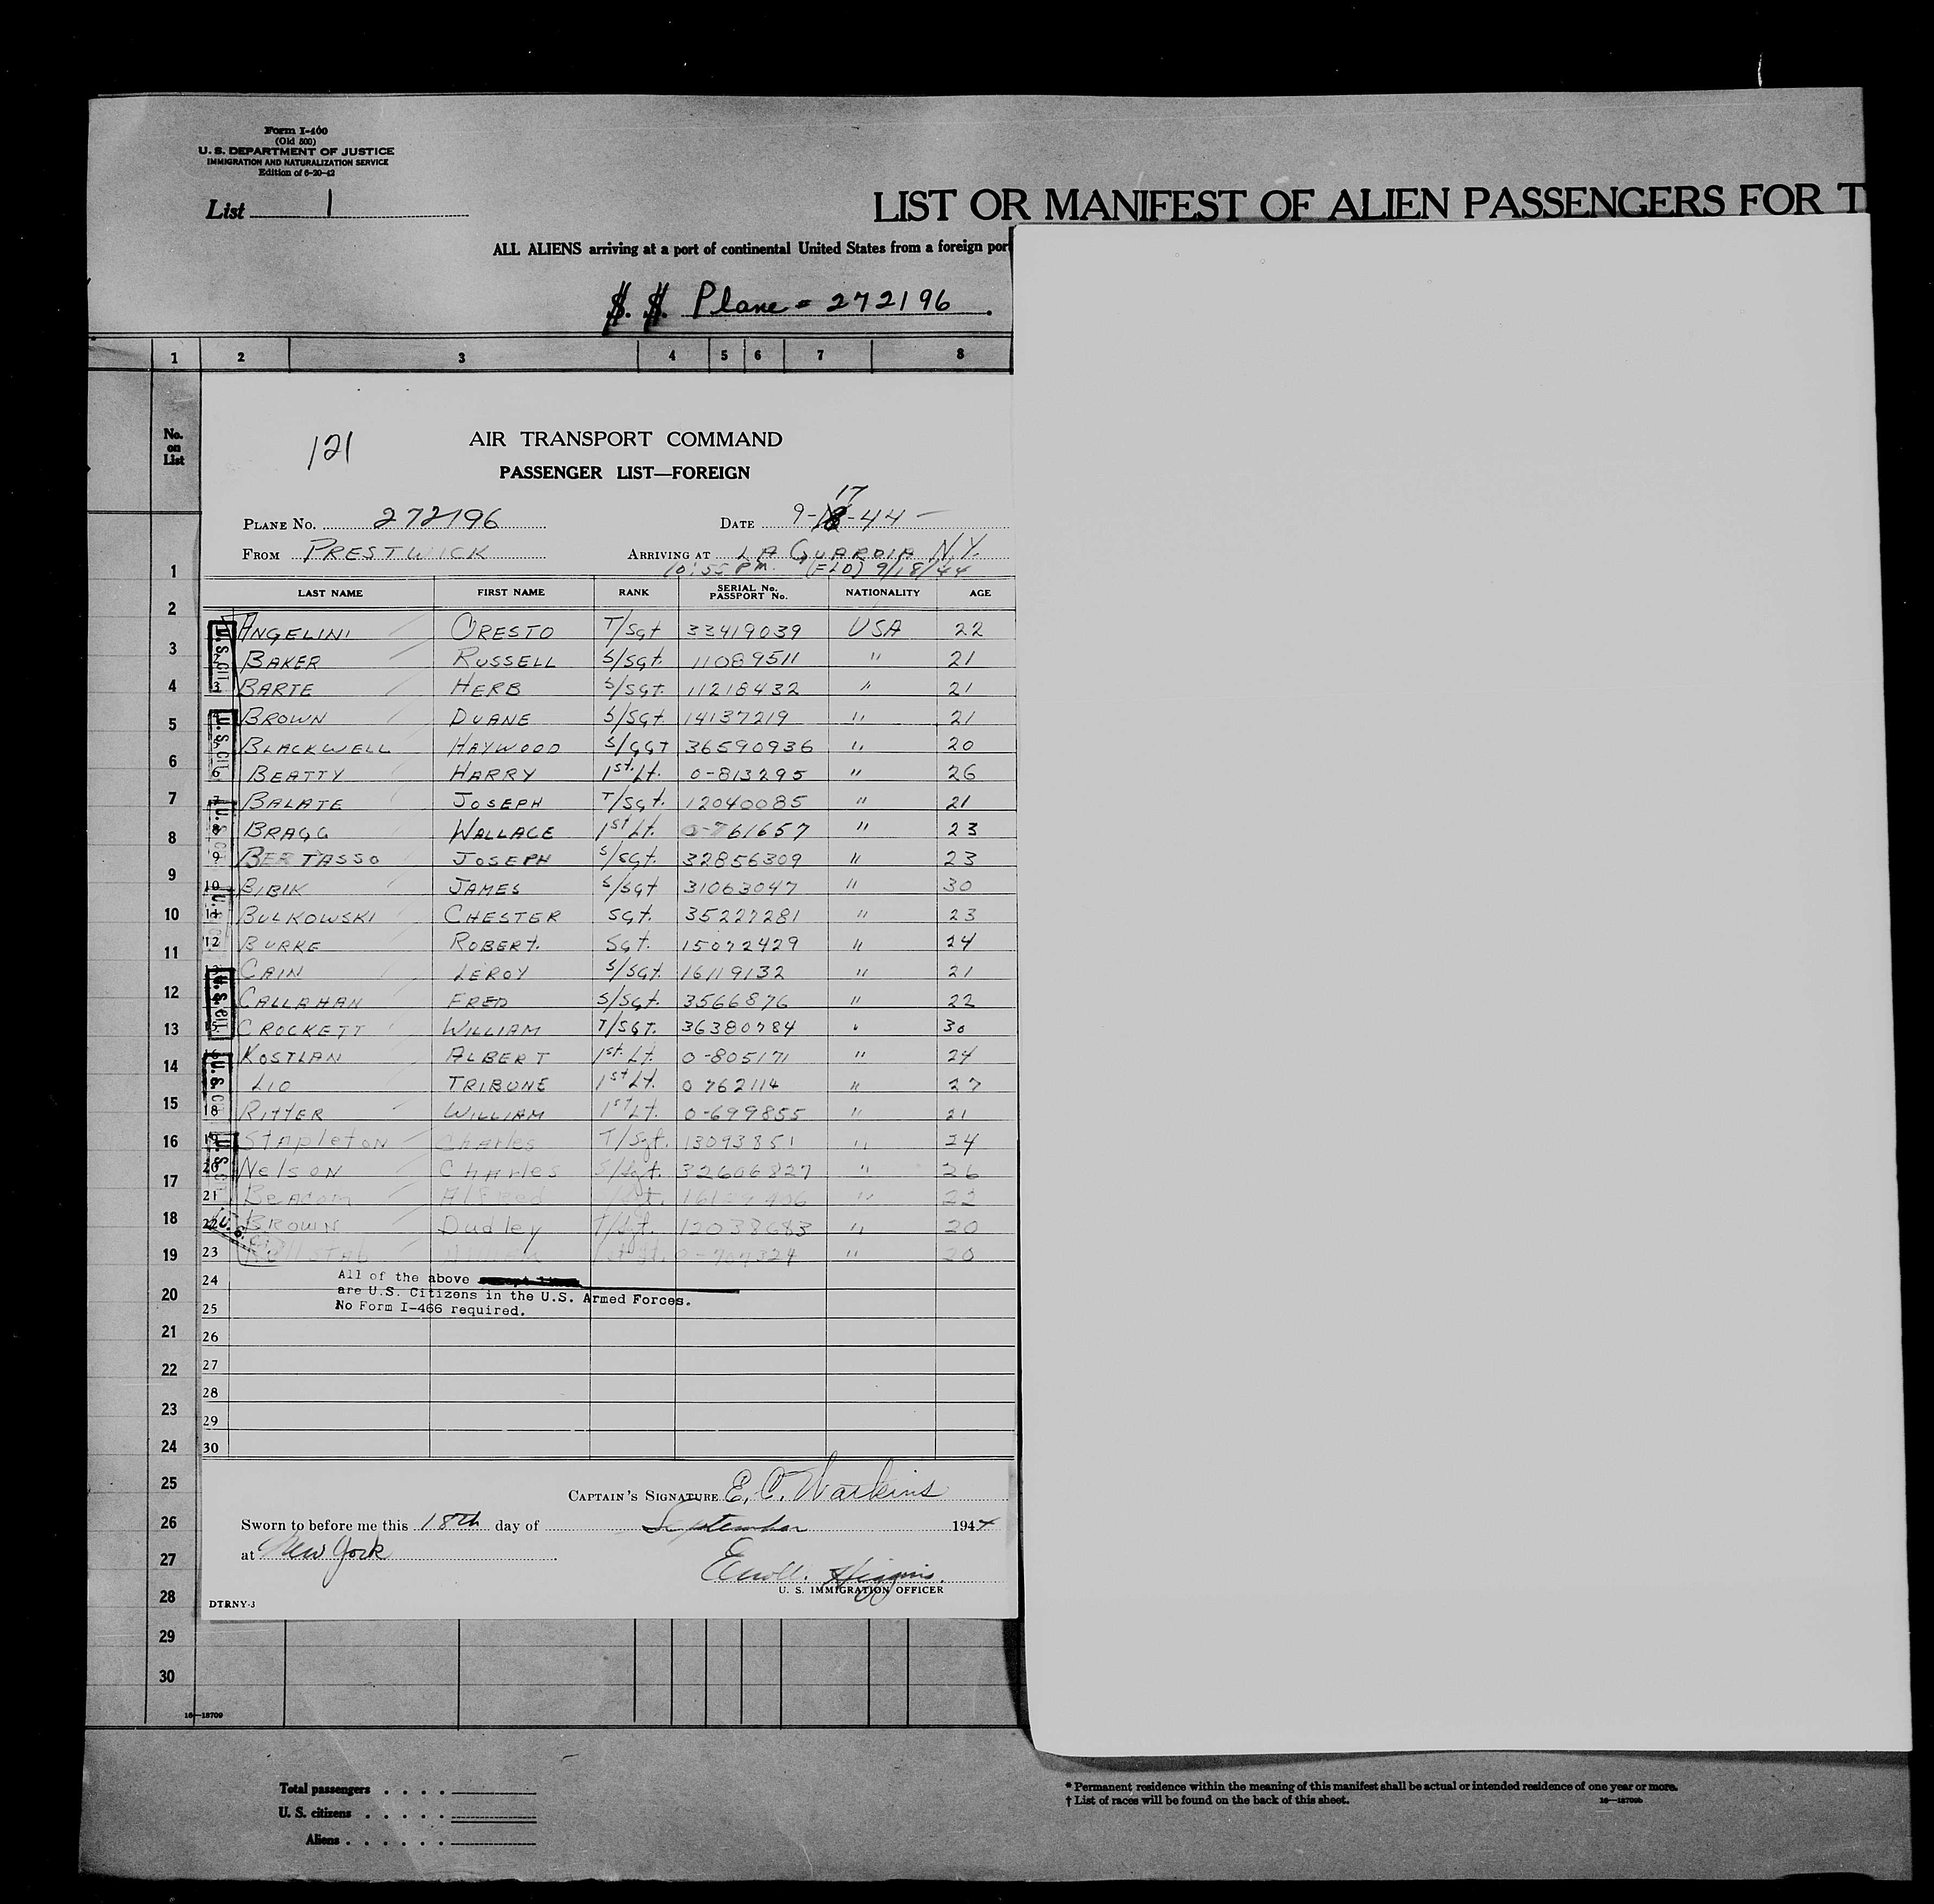 Form I-460
(Old 500)
U. S. DEPARTMENT OF JUSTICE
IMMIGRATION AND NATURALIZATION SERVICE
Edition of 6-20-42
List 1
LIST OR MANIFEST OF ALIEN PASSENGERS FOR T
ALL ALIENS arriving at a port of continental United States from a foreign port
S. S. Plane - 272196
1 2 3 4 5 6 7 8
No. on List
121
AIR TRANSPORT COMMAND
PASSENGER LIST—FOREIGN
PLANE No. 272196 DATE 9-17-44
FROM PRESTWICK ARRIVING AT LA GUARDIA N.Y.
10:55 PM. (FLD) 9/18/44
LAST NAME FIRST NAME RANK SERIAL No. PASSPORT No. NATIONALITY AGE
ANGELINI ORESTO T/Sgt 33419039 USA 22
BAKER RUSSELL S/Sgt. 11089511 " 21
3 BARTE HERB S/SGT. 11218432 " 21
BROWN DUANE S/SGT. 14137219 " 21
BLACKWELL HAYWOOD S/GGT 36590936 " 20
6 BEATTY HARRY 1st. Lt. 0-813295 " 26
7 BALATE JOSEPH T/Sgt. 12040085 " 21
8 BRAGG WALLACE 1st Lt. 0-761657 " 23
9 BERTASSO JOSEPH S/SGT. 32856309 " 23
10 BIBIK JAMES S/SGT 31063047 " 30
11 BULKOWSKI CHESTER SGT. 35227281 " 23
12 BURKE ROBERT. SGT. 15072429 " 24
13 CAIN LEROY S/SGT. 16119132 " 21
CALLAHAN FRED S/Sgt. 3566876 " 22
15 CROCKETT WILLIAM T/SGT. 36380784 " 30
16 KOSTLAN ALBERT 1st. Lt. 0-805171 " 24
LIO TRIBUNE 1st Lt. 0 762114 " 27
18 RITTER WILLIAM 1st Lt. 0-699855 " 21
19 Stapleton Charles T/Sgt. 13093851 " 24
20 Nelson Charles S/Sgt. 32606827 " 26
21 Beadom Alfred 22
22 BROWN Dudley T/Sgt. 12038683 " 20
23 " 20
24 All of the above
are U.S. Citizens in the U.S. Armed Forces.
25 No Form I-466 required.
26
27
28
29
30
U.S. CIT.
U.S. CIT.
U.S. CIT.
U.S. CIT.
U.S. CIT.
U.S. CIT.
CAPTAIN'S SIGNATURE E. C. Watkins
Sworn to before me this 18th day of September 1944
at New York
Higgins.
U. S. IMMIGRATION OFFICER
DTRNY-3
1
2
3
4
5
6
7
8
9
10
11
12
13
14
15
16
17
18
19
20
21
22
23
24
25
26
27
28
29
30
16—18709
Total passengers . . . .
U. S. citizens . . . . .
Aliens . . . . . .
* Permanent residence within the meaning of this manifest shall be actual or intended residence of one year or more.
† List of races will be found on the back of this sheet. 16—18709b